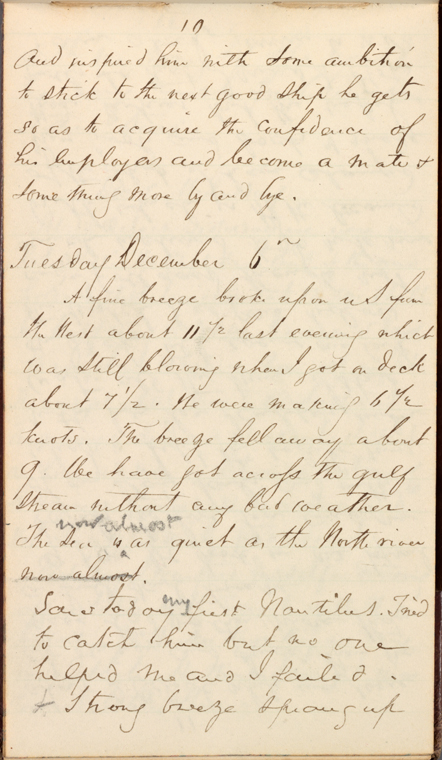 10
And inspired him with some ambition
to stick to the next good ship he gets
so as to acquire the confidence of
his employers and become a mate &
something more by and bye.
Tuesday December 6th
A fine breeze broke upon us from
the West about 11 1/2 last evening which
was still blowing when I got on deck
about 7 1/2. We were making 6 1/2
knots. The breeze fell away about
9. We have got across the gulf
stream without any bad weather.
now almost
The Sea is as quiet as the North river
now almost.
Saw today my first Nautilus. Tried
to catch him but no one
helped me and I failed.
A Strong breeze sprang up